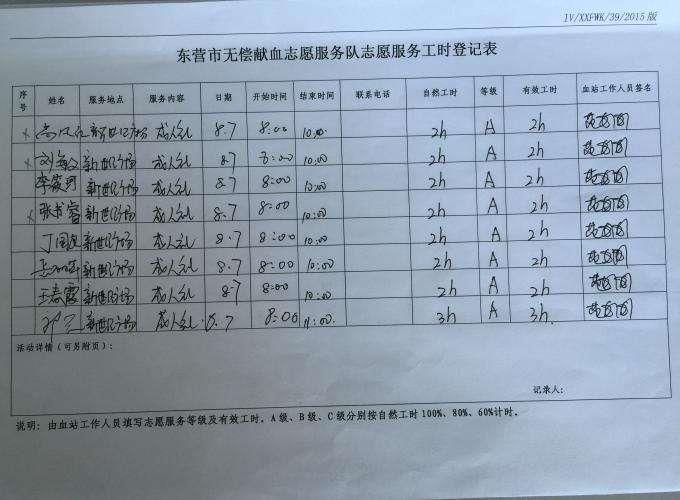 IV/XXFWK/39/2015 版
东营市无偿献血志愿服务队志愿服务工时登记表
序号 姓名 服务地点 服务内容 日期 开始时间 结束时间 联系电话 自然工时 等级 有效工时 血站工作人员签名
新世纪广场 成人礼 8.7 8:00 10:00 2h A 2h
刘 新世纪广场 成人礼 8.7 8:00 10:00 2h A 2h
李 新世纪广场 成人礼 8.7 8:00 10:00 2h A 2h
张 新世纪广场 成人礼 8.7 8:00 10:00 2h A 2h
丁国 新世纪广场 成人礼 8.7 8:00 10:00 2h A 2h
新世纪广场 成人礼 8.7 8:00 10:00 2h A 2h
王春霞 新世纪广场 成人礼 8.7 8:00 10:00 2h A 2h
新世纪广场 成人礼 8.7 8:00 11:00 3h A 3h
活动详情（可另附页）：
记录人：
说明：由血站工作人员填写志愿服务等级及有效工时。A 级、B 级、C 级分别按自然工时 100%、80%、60%计时。